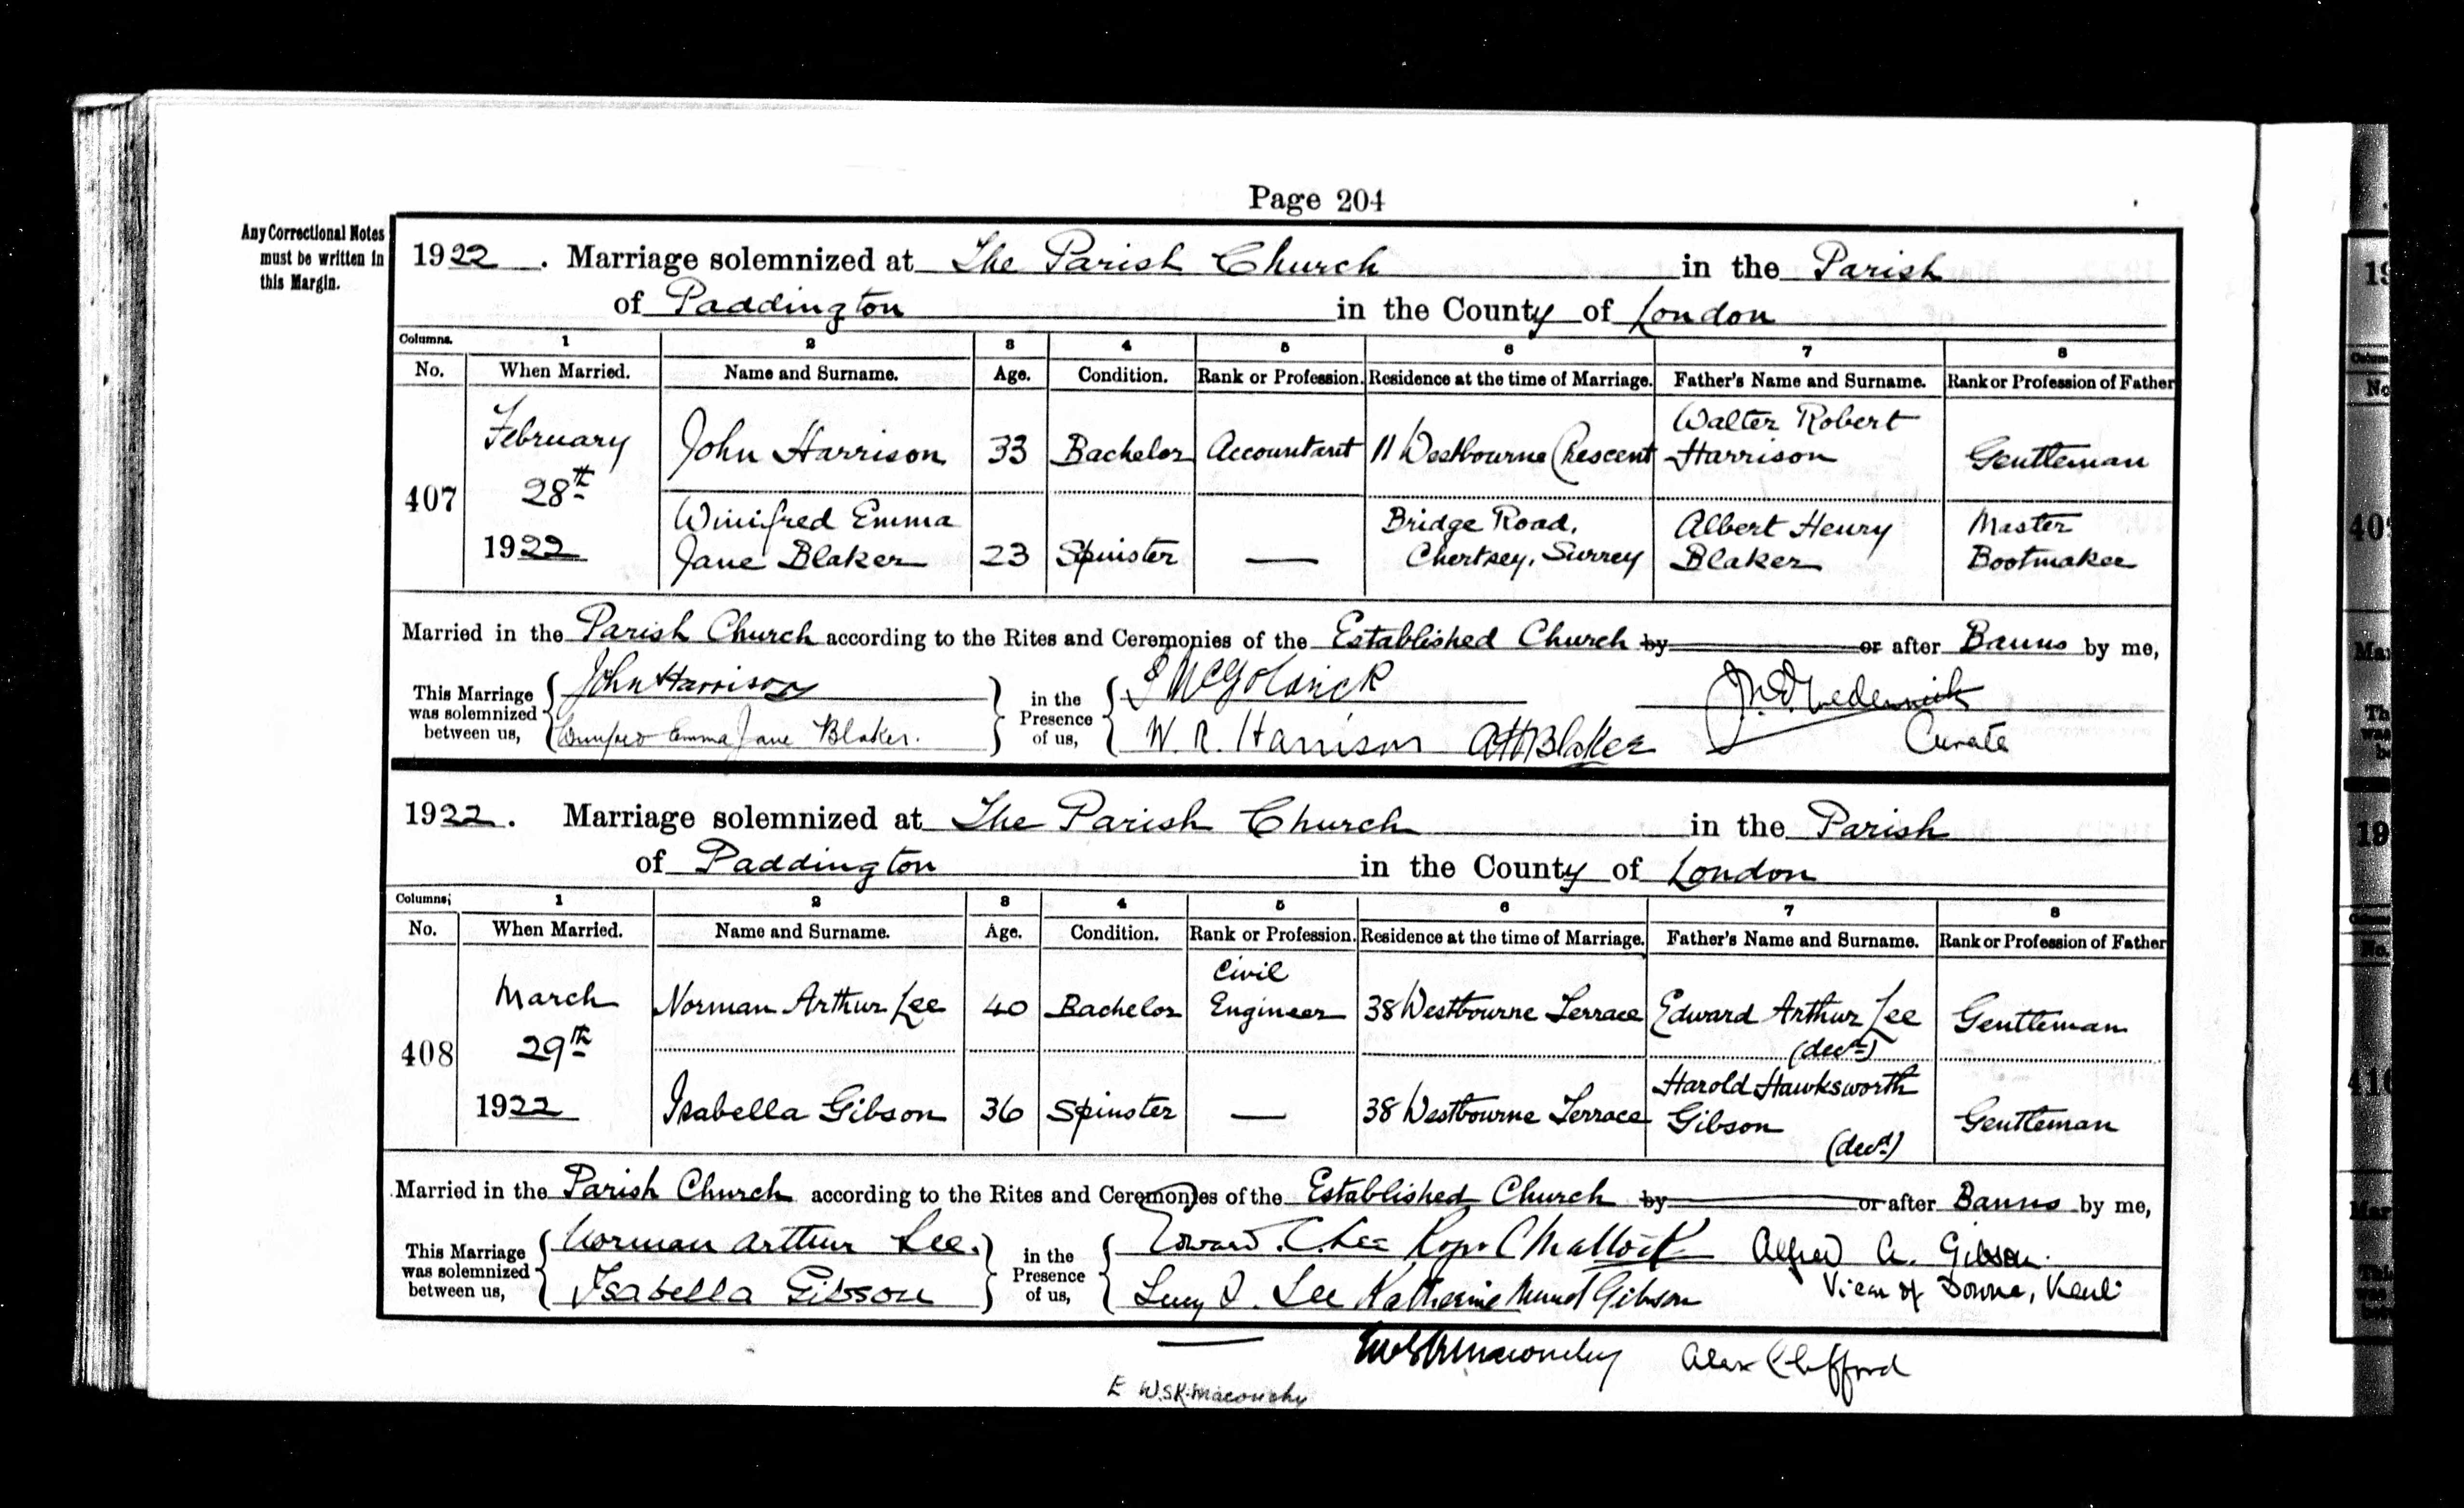 Page 204
Any Correctional Notes
must be written in
this Margin.
1922. Marriage solemnized at The Parish Church in the Parish
of Paddington in the County of London
Columns. 1 2 3 4 5 6 7 8
No. When Married. Name and Surname. Age. Condition. Rank or Profession. Residence at the time of Marriage. Father's Name and Surname. Rank or Profession of Father
407 February 28th 1922 John Harrison 33 Bachelor Accountant 11 Westbourne Crescent Walter Robert Harrison Gentleman
Winifred Emma Jane Blaker 23 Spinster — Bridge Road, Chertsey, Surrey Albert Henry Blaker Master Bootmaker
Married in the Parish Church according to the Rites and Ceremonies of the Established Church by or after Banns by me,
This Marriage was solemnized between us, John Harrison in the Presence of us, E McGoldrick
Winifred Emma Jane Blaker. W. R. Harrison A H Blaker Curate
1922. Marriage solemnized at The Parish Church in the Parish
of Paddington in the County of London
Columns; 1 2 3 4 5 6 7 8
No. When Married. Name and Surname. Age. Condition. Rank or Profession. Residence at the time of Marriage. Father's Name and Surname. Rank or Profession of Father
408 March 29th 1922 Norman Arthur Lee 40 Bachelor Civil Engineer 38 Westbourne Terrace Edward Arthur Lee (decd) Gentleman
Isabella Gibson 36 Spinster — 38 Westbourne Terrace Harold Hawksworth Gibson (decd) Gentleman
Married in the Parish Church according to the Rites and Ceremonies of the Established Church by or after Banns by me,
This Marriage was solemnized between us, Norman Arthur Lee. in the Presence of us, Edward. C. Lee Alfred A. Gibson.
Isabella Gibson Lucy I. Lee Katherine Maud Gibson Vicar of Downe, Kent
Alex Clifford
E W.S.K. Maconchy